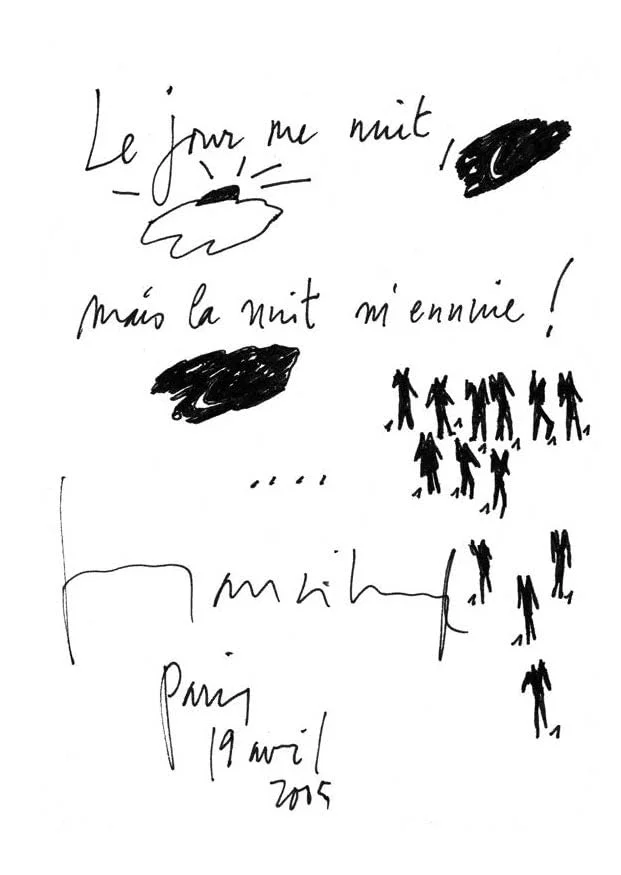 Le jour me nuit,
mais la nuit m'ennuie !
....
Paris
19 avril
2005